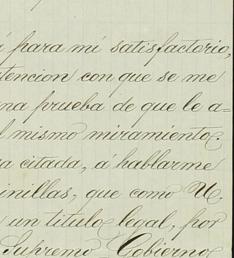 í para mí satisfactorio,
tencion con que se me
na prueba de que le a=
l mismo miramiento
a citada, á hablarme
inillas, que como U.
un titulo legal, por
Supremo Gobierno